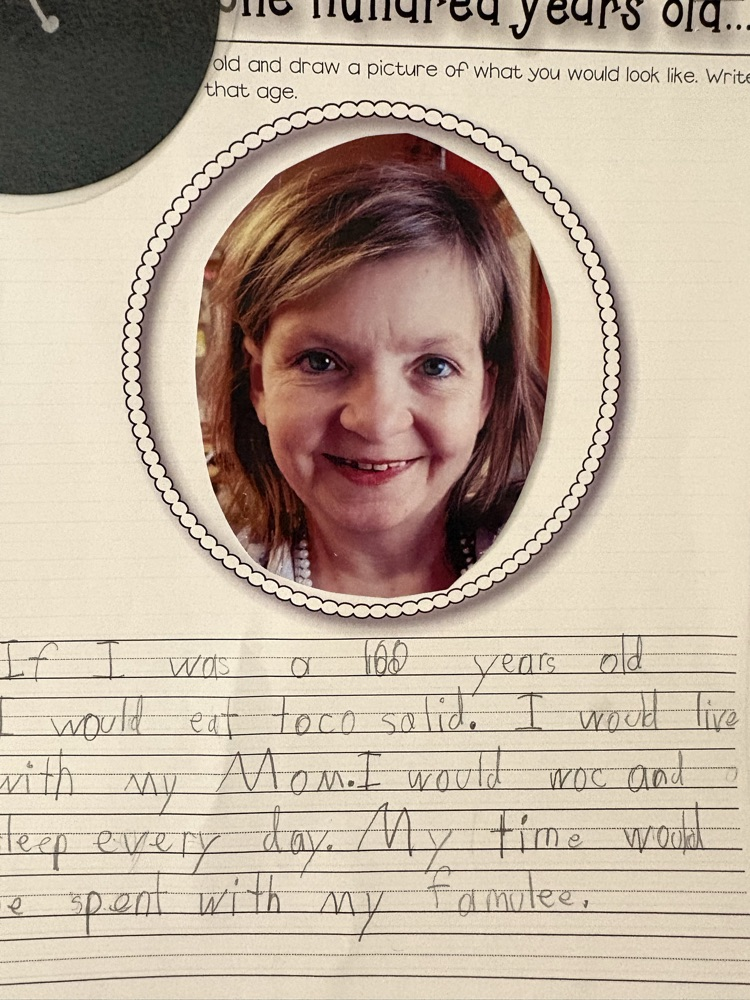 one hundred years old...
old and draw a picture of what you would look like. Write
that age.
If I was a 100 years old
I would eat toco salid. I would live
with my Mom. I would woc and
leep every day. My time would
e spent with my famulee.